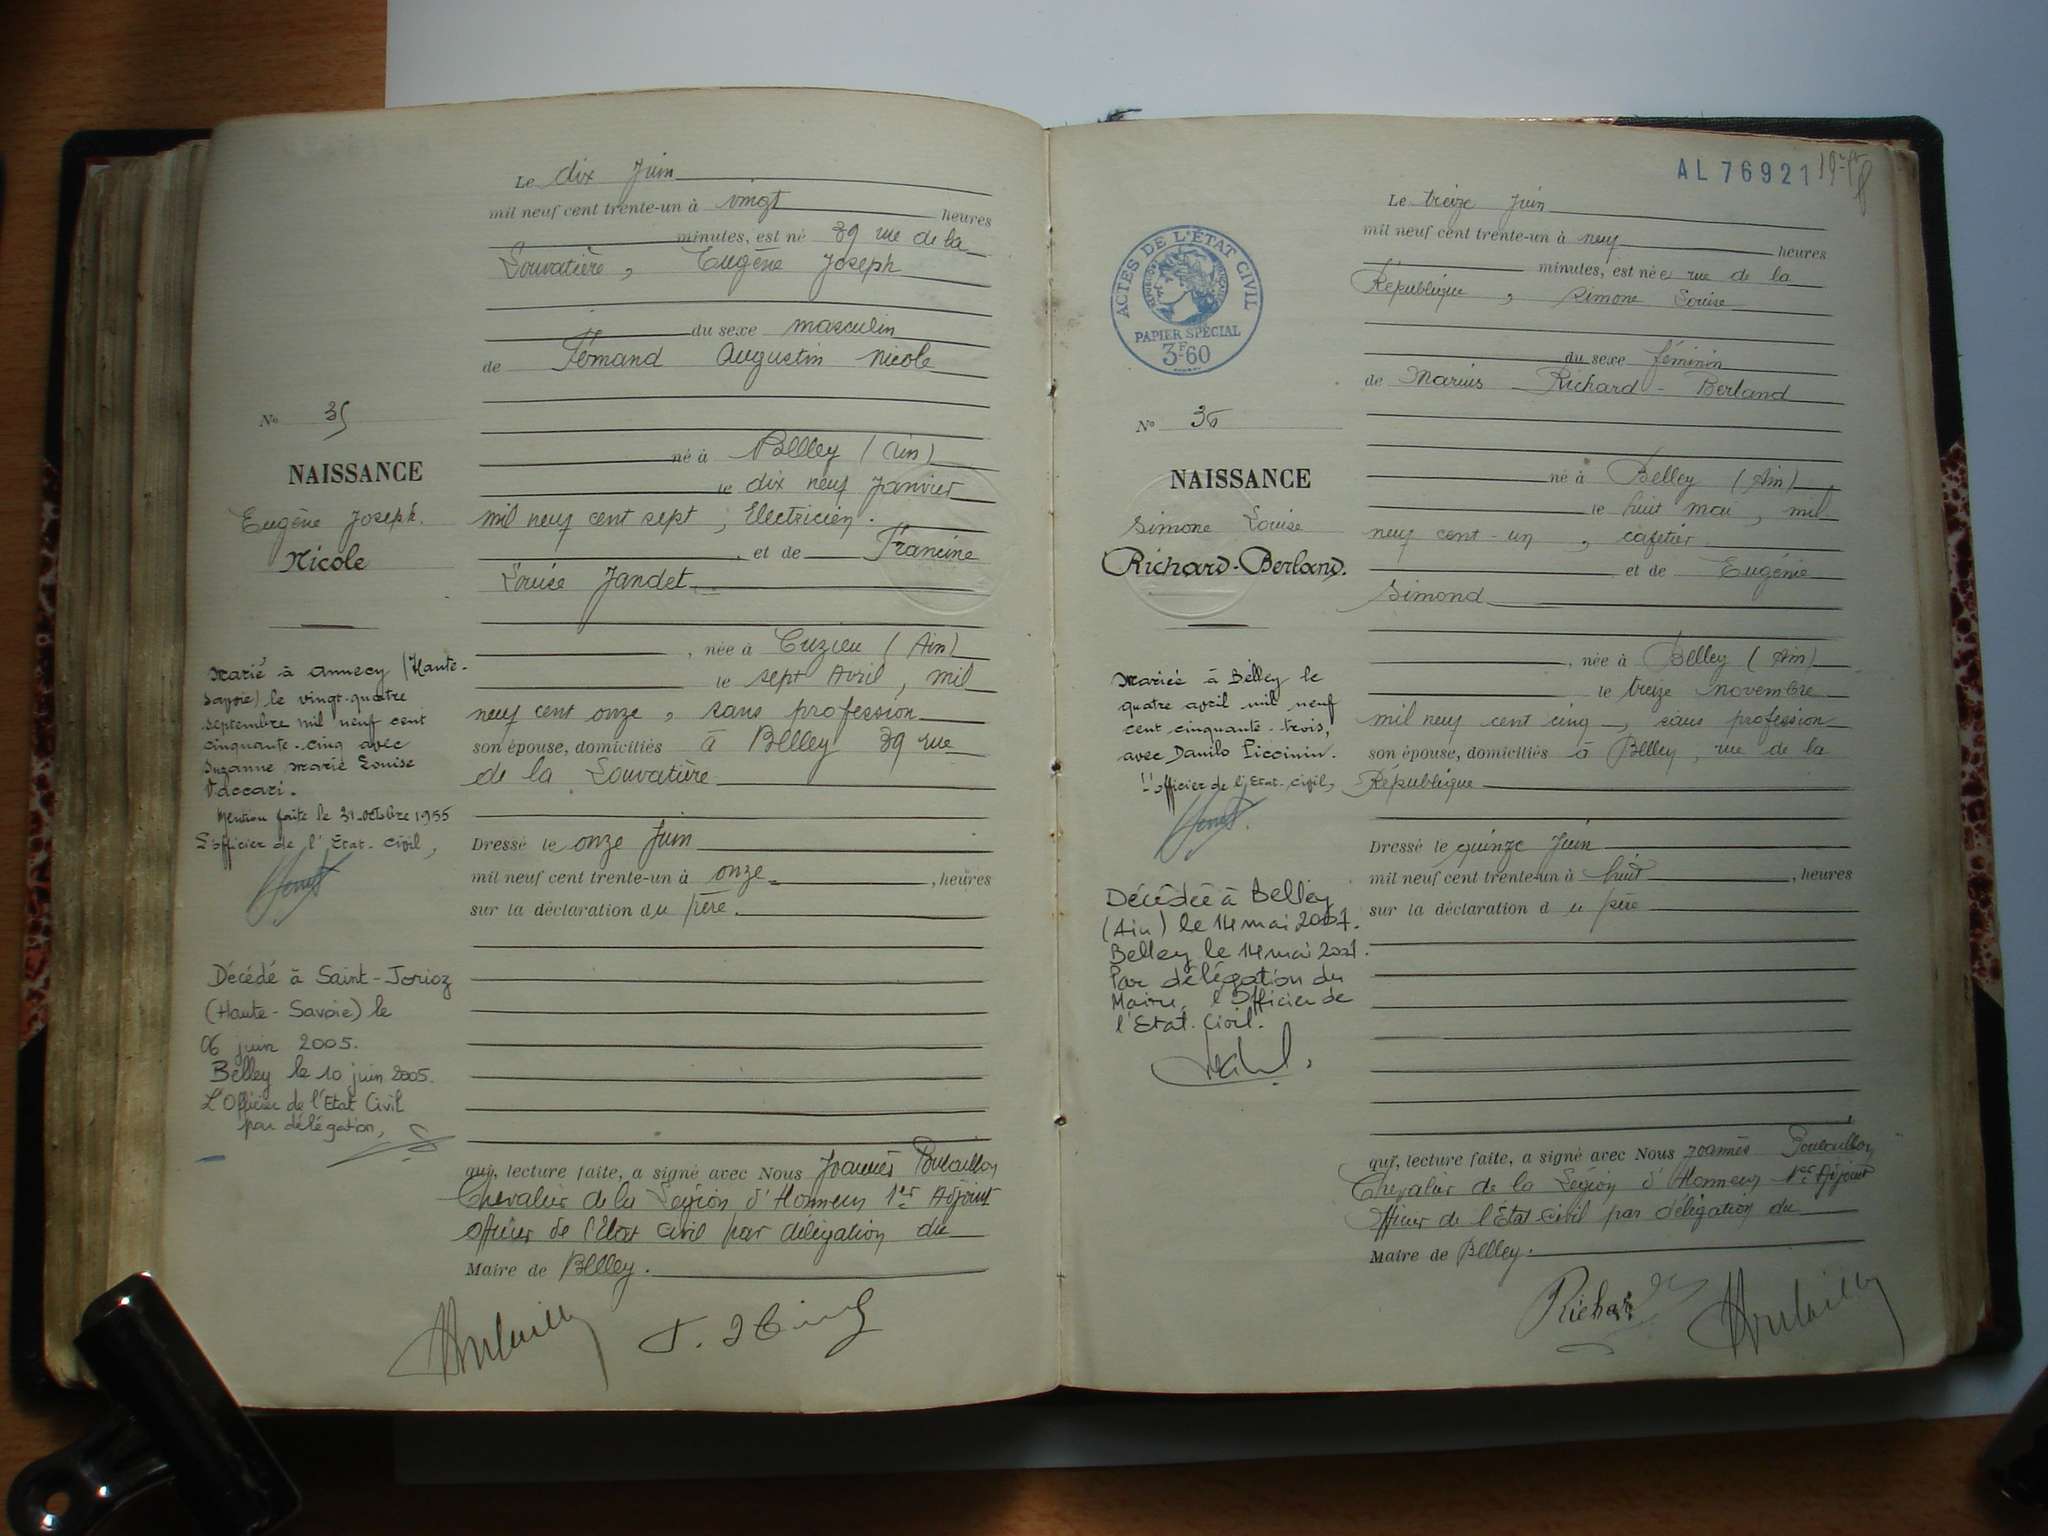 Le dix Juin
mil neuf cent trente-un à vingt heures
minutes, est né 39 rue de la
Louvatière, Eugène Joseph
du sexe masculin
de Fernand Augustin Nicole
No 35
NAISSANCE
Eugène Joseph.
Nicole
né à Belley (Ain)
le dix neuf Janvier
mil neuf cent sept, Electricien.
et de Francine
Louise Jandet
née à Cuzieu (Ain)
le sept Avril, mil
neuf cent onze, sans profession
son épouse, domiciliés à Belley 39 rue
de la Louvatière
Marié à Annecy (Haute-
Savoie) le vingt-quatre
septembre mil neuf cent
cinquante-cinq avec
Suzanne Marie Louise
Vaccari.
Mention faite le 31 octobre 1955
L'officier de l'Etat-civil,
Dressé le onze Juin
mil neuf cent trente-un à onze, heures
sur la déclaration du père.
Décédé à Saint-Jorioz
(Haute-Savoie) le
06 juin 2005.
Belley le 10 juin 2005.
L'Officier de l'Etat Civil
par délégation,
qui, lecture faite, a signé avec Nous Joannès
Chevalier de la Légion d'Honneur 1er Adjoint
officier de l'Etat civil par délégation du
Maire de Belley.
AL 76921
ACTES DE L'ÉTAT CIVIL
PAPIER SPÉCIAL
3F60
Le treize Juin
mil neuf cent trente-un à neuf heures
minutes, est née rue de la
République, Simone Louise
du sexe féminin
de Marius Richard-Berland
No 36
NAISSANCE
Simone Louise
Richard-Berland.
né à Belley (Ain)
le huit mai, mil
neuf cent-un, cafetier
et de Eugénie
Simond
, née à Belley (Ain)
le treize novembre
mil neuf cent cinq, sans profession
son épouse, domiciliés à Belley, rue de la
République
Mariée à Belley le
quatre avril mil neuf
cent cinquante-trois,
avec Danilo Piccinin.
L'officier de l'Etat-civil,
Dressé le quinze Juin
mil neuf cent trente-un à huit, heures
sur la déclaration du père
Décédée à Belley
(Ain) le 14 mai 2001.
Belley le 14 mai 2001.
Par délégation du
Maire, l'Officier de
l'Etat-Civil.
qui, lecture faite, a signé avec Nous Joannès
Chevalier de la Légion d'Honneur 1er Adjoint
Officier de l'Etat civil par délégation du
Maire de Belley.
Richard